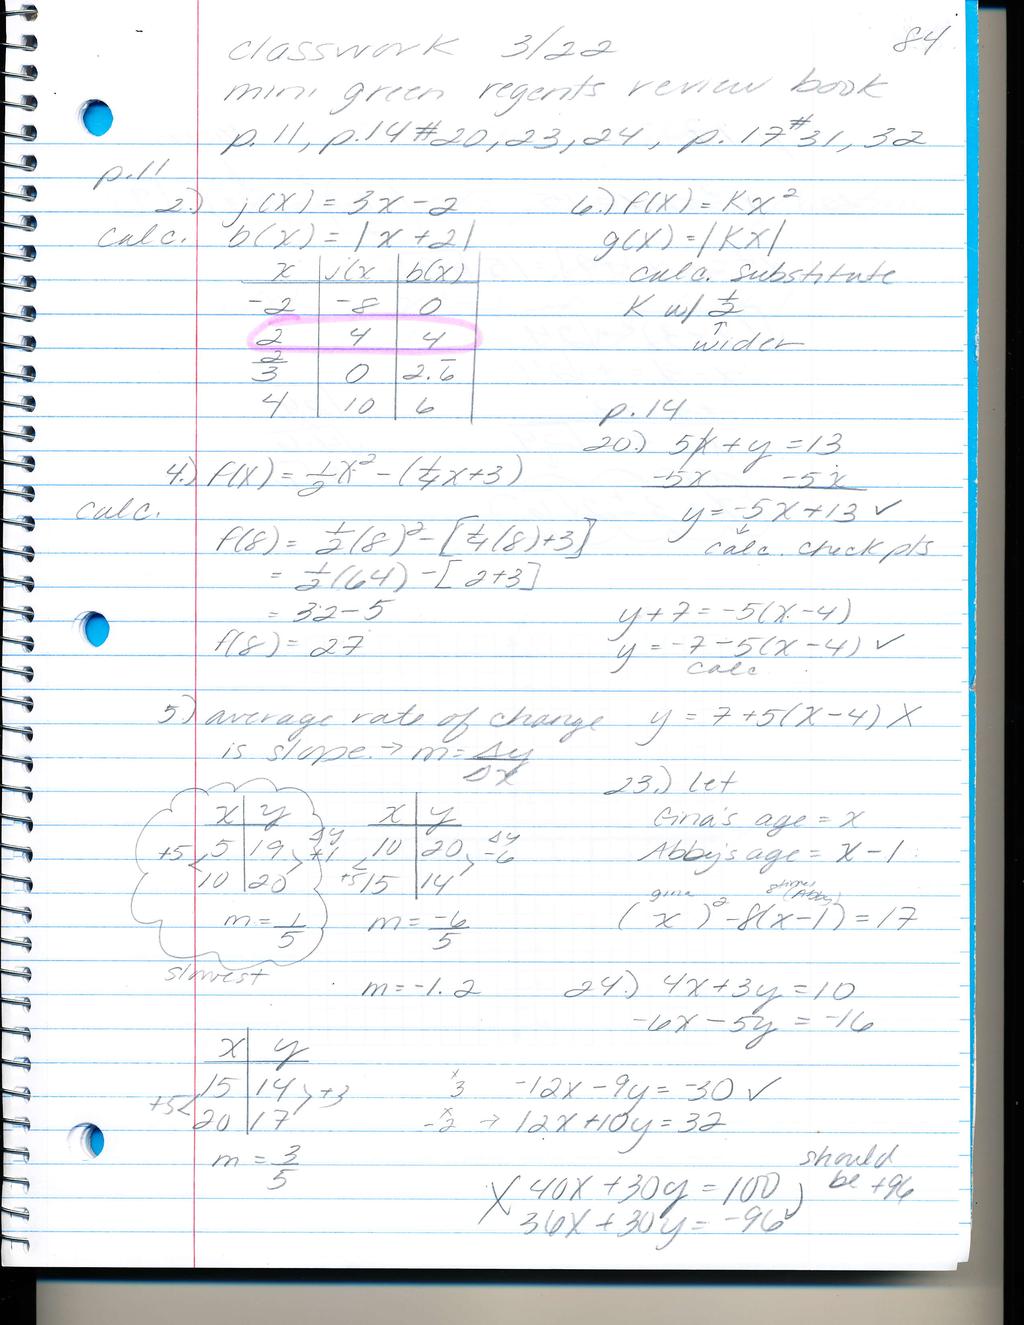 84
classwork 3/22
mini green regents review book
p. 11, p. 14 #20, 23, 24, p. 17 #31, 32
p. 11
2.) j(x) = 3x - 2
calc. b(x) = |x + 2|
x | j(x | b(x)
-2 | -8 | 0
2 | 4 | 4
2/3 | 0 | 2.6̅
4 | 10 | 6
4.) f(x) = 1/2x² - (1/4x + 3)
calc.
f(8) = 1/2(8)² - [1/4(8)+3]
= 1/2(64) - [2+3]
= 32-5
f(8) = 27
5) average rate of change
is slope. → m = Δy/Δx
x | y
+5 < 5 | 19 > Δy +1
10 | 20
m = 1/5
slowest
x | y
10 | 20 > Δy -6
+5 < 15 | 14
m = -6/5
m = -1.2
x | y
+5 < 15 | 14 > +3
20 | 17
m = 3/5
6.) f(x) = Kx²
g(x) = |Kx|
calc. substitute
K w/ 1/2
↑
wider
p. 14
20.) 5x + y = 13
-5x -5x
y = -5x + 13 ✓
↓
calc. check pts
y + 7 = -5(x - 4)
y = -7 - 5(x - 4) ✓
calc
y = 7 + 5(x - 4) X
23.) let
Gina's age = x
Abby's age = x - 1
gina 8 times (Abby)
(x)² - 8(x - 1) = 17
24.) 4x + 3y = 10
-6x - 5y = -16
x3 -12x - 9y = -30 ✓
x-2 → 12x + 10y = 32
should
be +96
X 40x + 30y = 100
36x + 30y = -96